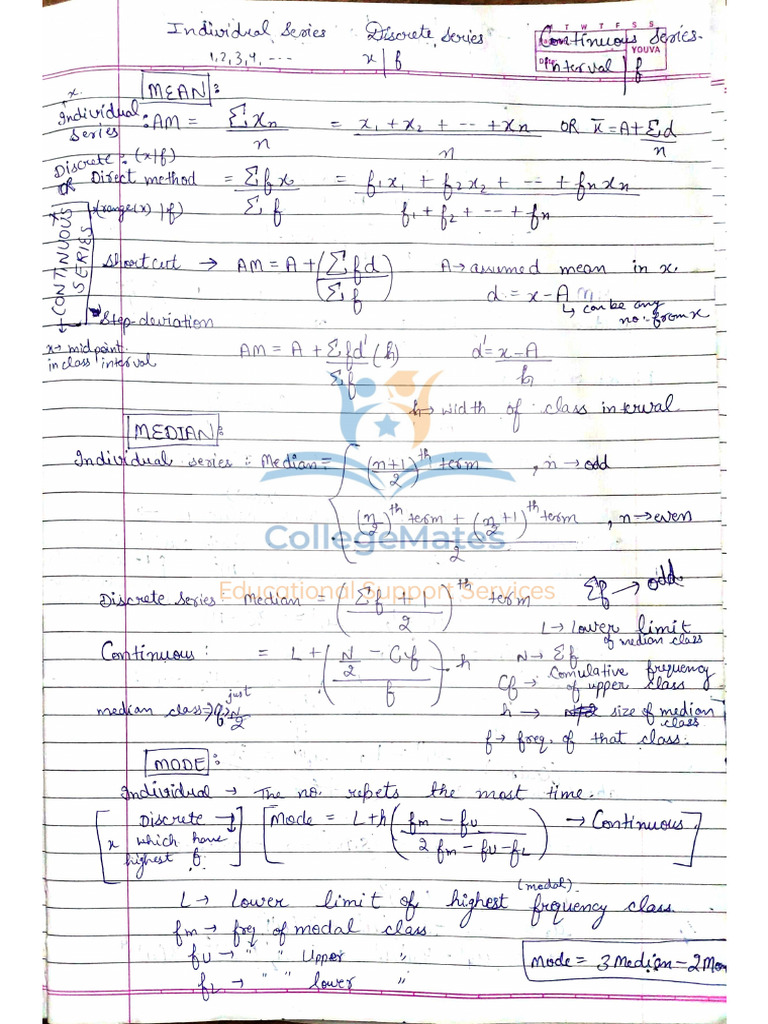 Individual Series Discrete Series Continuous Series.
1,2,3,4, --- x | f interval | f
T W T F S S
YOUVA
x.
MEAN :
Individual Series : AM = Σxn / n = x1 + x2 + -- + xn / n OR x̄ = A + Σd / n
Discrete : (x|f)
OR Direct method = Σfx / Σf = f1x1 + f2x2 + -- + fnxn / f1 + f2 + -- + fn
x(range(x) | f)
CONTINUOUS SERIES
Shortcut → AM = A + (Σfd / Σf) A → assumed mean in x.
d = x - A
↳ can be any no. from x
Step deviation
x → midpoint in class interval
AM = A + Σfd' / Σf (h) d' = x - A / h
h → width of class interval
MEDIAN :
Individual series : Median = { (n+1 / 2)th term , n → odd
(n/2)th term + (n/2 + 1)th term / 2 , n → even
CollegeMates
Educational Support Services
Discrete series Median = (Σf + 1 / 2)th term Σf → odd
L → Lower limit of median class
Continuous : = L + (N/2 - Cf / f) . h N → Σf
Cf → Comulative frequency of upper class
median class → just h → size of median class
f → freq. of that class.
MODE :
Individual → The no. repets the most time.
[Discrete → x which have highest f] [Mode = L + h (fm - fU / 2fm - fU - fL) → Continuous]
L → Lower limit of highest (modal) frequency class.
fm → freq of modal class.
fU → " " Upper "
fL → " " lower "
Mode = 3 Median - 2